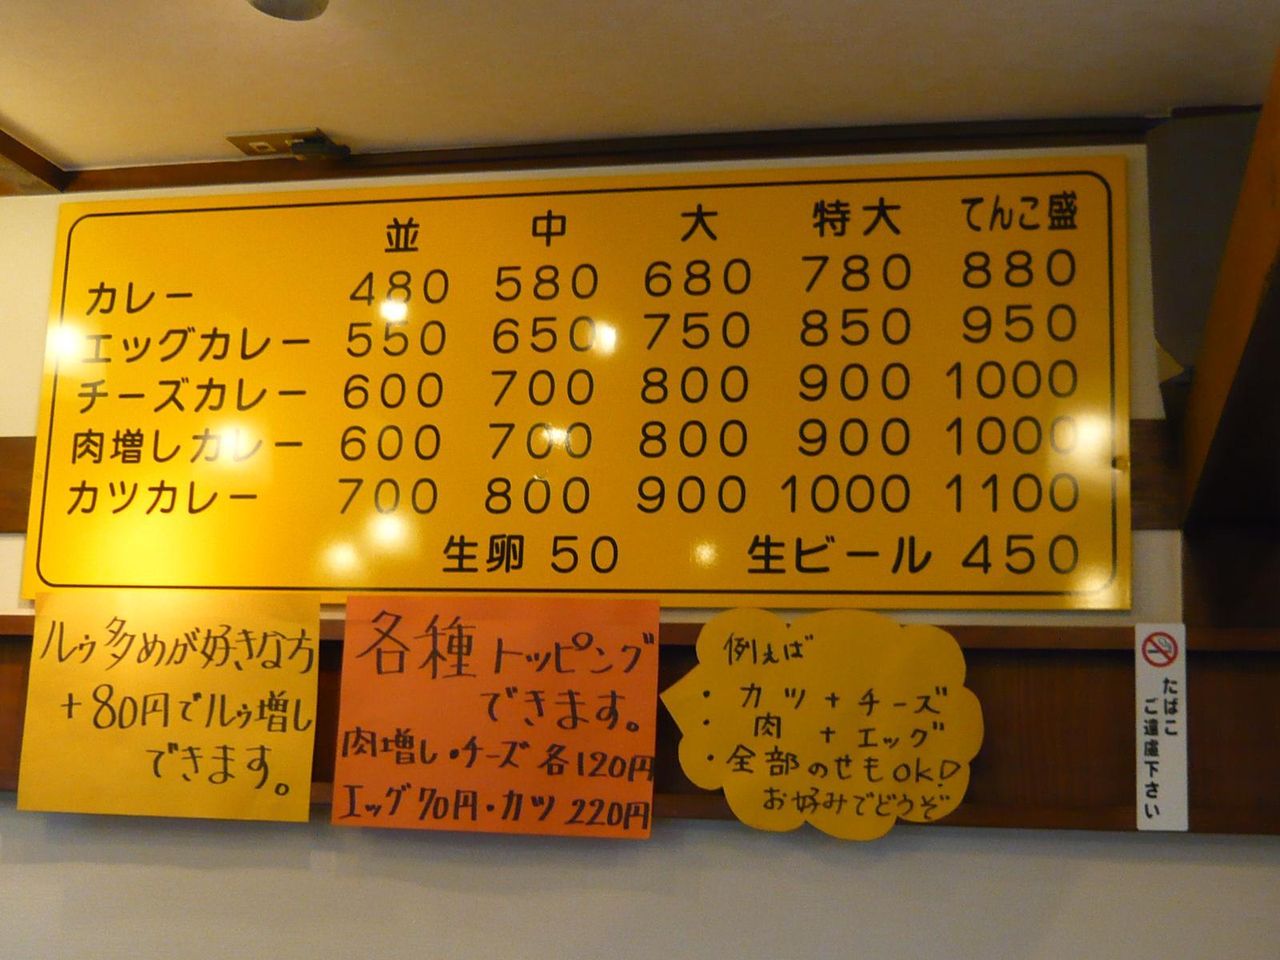 並 中 大 特大 てんこ盛
カレー 480 580 680 780 880
エッグカレー 550 650 750 850 950
チーズカレー 600 700 800 900 1000
肉増しカレー 600 700 800 900 1000
カツカレー 700 800 900 1000 1100
生卵 50 生ビール 450
ルゥ多めが好きな方
+80円でルゥ増し
できます。
各種トッピング
できます。
肉増し・チーズ 各120円
エッグ70円・カツ 220円
例えば
・カツ+チーズ
・肉+エッグ
・全部のせもOK!
お好みでどうぞ
たばこ
ご遠慮下さい